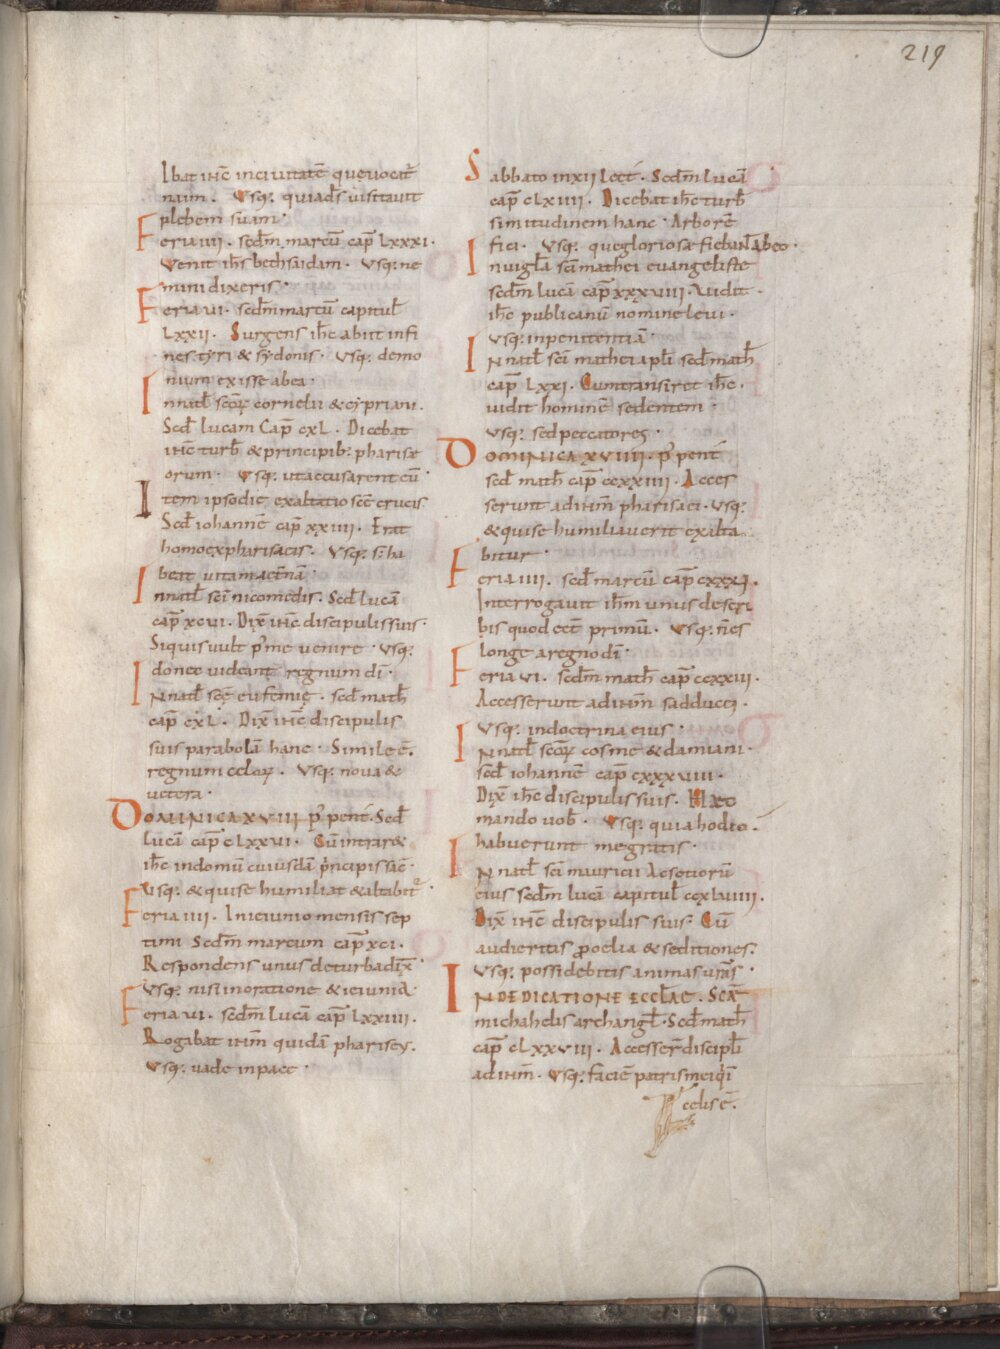 219
Ibat ihc in civitatē que vocat̄
naim. Usq; quia d̄s visitavit
plebem suam.
Feria IIII. secđm marcū cap̄ LXXXI.
Venit ihs bethsaidam. Usq; ne
mini dixeris.
Feria VI. secđm marcū capitul̄
LXXII. Surgens ihc abiit in fi
nes tyri & sydonis. Usq; demo
nium exisse a bea.
In natl̄ scōꝝ cornelii & cypriani.
Secđ lucam Cap̄ CXL. Dicebat
ihc turb̄ & principib; pharisæ
orum. Usq; ut accusarent eū.
Item ipso die exaltatio scē crucis
Secđ iohannē cap̄ XXIIII. Erat
homo ex pharisaeis. Usq; s; ha
beat vitam aet̄nā.
In natl̄ scī nicomedis. Secđ lucā
cap̄ XCVI. Dix̄ ihc discipulis suis.
Si quis vult p̄ me venire. Usq;
donec videant regnum dī.
In natl̄ scē eufemię. secđ math̄
cap̄ CXL. Dix̄ ihc discipulis
suis parabolā hanc. Simile ē.
regnum celoꝝ. Usq; nova &
vetera.
DOMINICA XVIII p̄ pent̄. Secđ
lucā cap̄ CLXXVI. Cū intrar&
ihc in domū cuiusdā p̄ncipis sac̄.
Usq; & qui se humiliat exaltabit̄.
Feria IIII. In ieiunio mensis sep
timi Secđm marcum cap̄ XCI.
Respondens unus de turba dix̄
Usq; nisi in oratione & ieiunio.
Feria VI. secđm lucā cap̄ LXXIIII.
Rogabat ihm quidā phariseꝰ.
Usq; vade in pace.
Sabbato in XII lect̄. Secđm lucā
cap̄ CLXIIII. Dicebat ihc turb̄
similitudinem hanc. Arborē
fici. Usq; que gloriosæ fiebant ab eo.
In vigl̄a scī mathei evangelistæ
secđm lucā cap̄ XXXVIII. Vidit
ihc publicanū nomine levi.
Usq; in penitentiā.
In natl̄ scī mathei apl̄i secđ math̄
cap̄ LXXI. Cum transiret ihc.
vidit hominē sedentem.
Usq; sed peccatores.
DOMINICA XVIIII. p̄ pent̄
secđ math̄ cap̄ CCXXIIII. Acces
serunt ad ihm pharisaei. Usq;
& qui se humiliaverit exalta
bitur.
Feria IIII. secđ marcū cap̄ CXXXI.
Interrogavit ihm unus de scri
bis quod eēt primū. Usq; n̄ es
longe a regno dī.
Feria VI. secđm math̄ cap̄ CCXXIII.
Accesserunt ad ihm sadducei.
Usq; in doctrina eius.
In natl̄ scōꝝ cosme & damiani.
secđ iohannē cap̄ CXXXVIII.
Dix̄ ihc discipulis suis. Hæc
mando vob̄. Usq; quia hodio.
habuerunt me gratis.
In natl̄ scī mauricii Ac sociorū
eius secđm lucā capitul̄ CCXLVIIII.
Dix̄ ihc discipulis suis. Cū
audieritis proelia & seditiones.
Usq; possidebitis animas vr̄as.
IN DEDICATIONE ECCL̄AE. SCĀ
michahelis archangl̄. Secđ math̄
cap̄ CLXXVIII. Accesser̄ discipl̄i
ad ihm. Usq; faciē patris mei qui ī
celis ē.